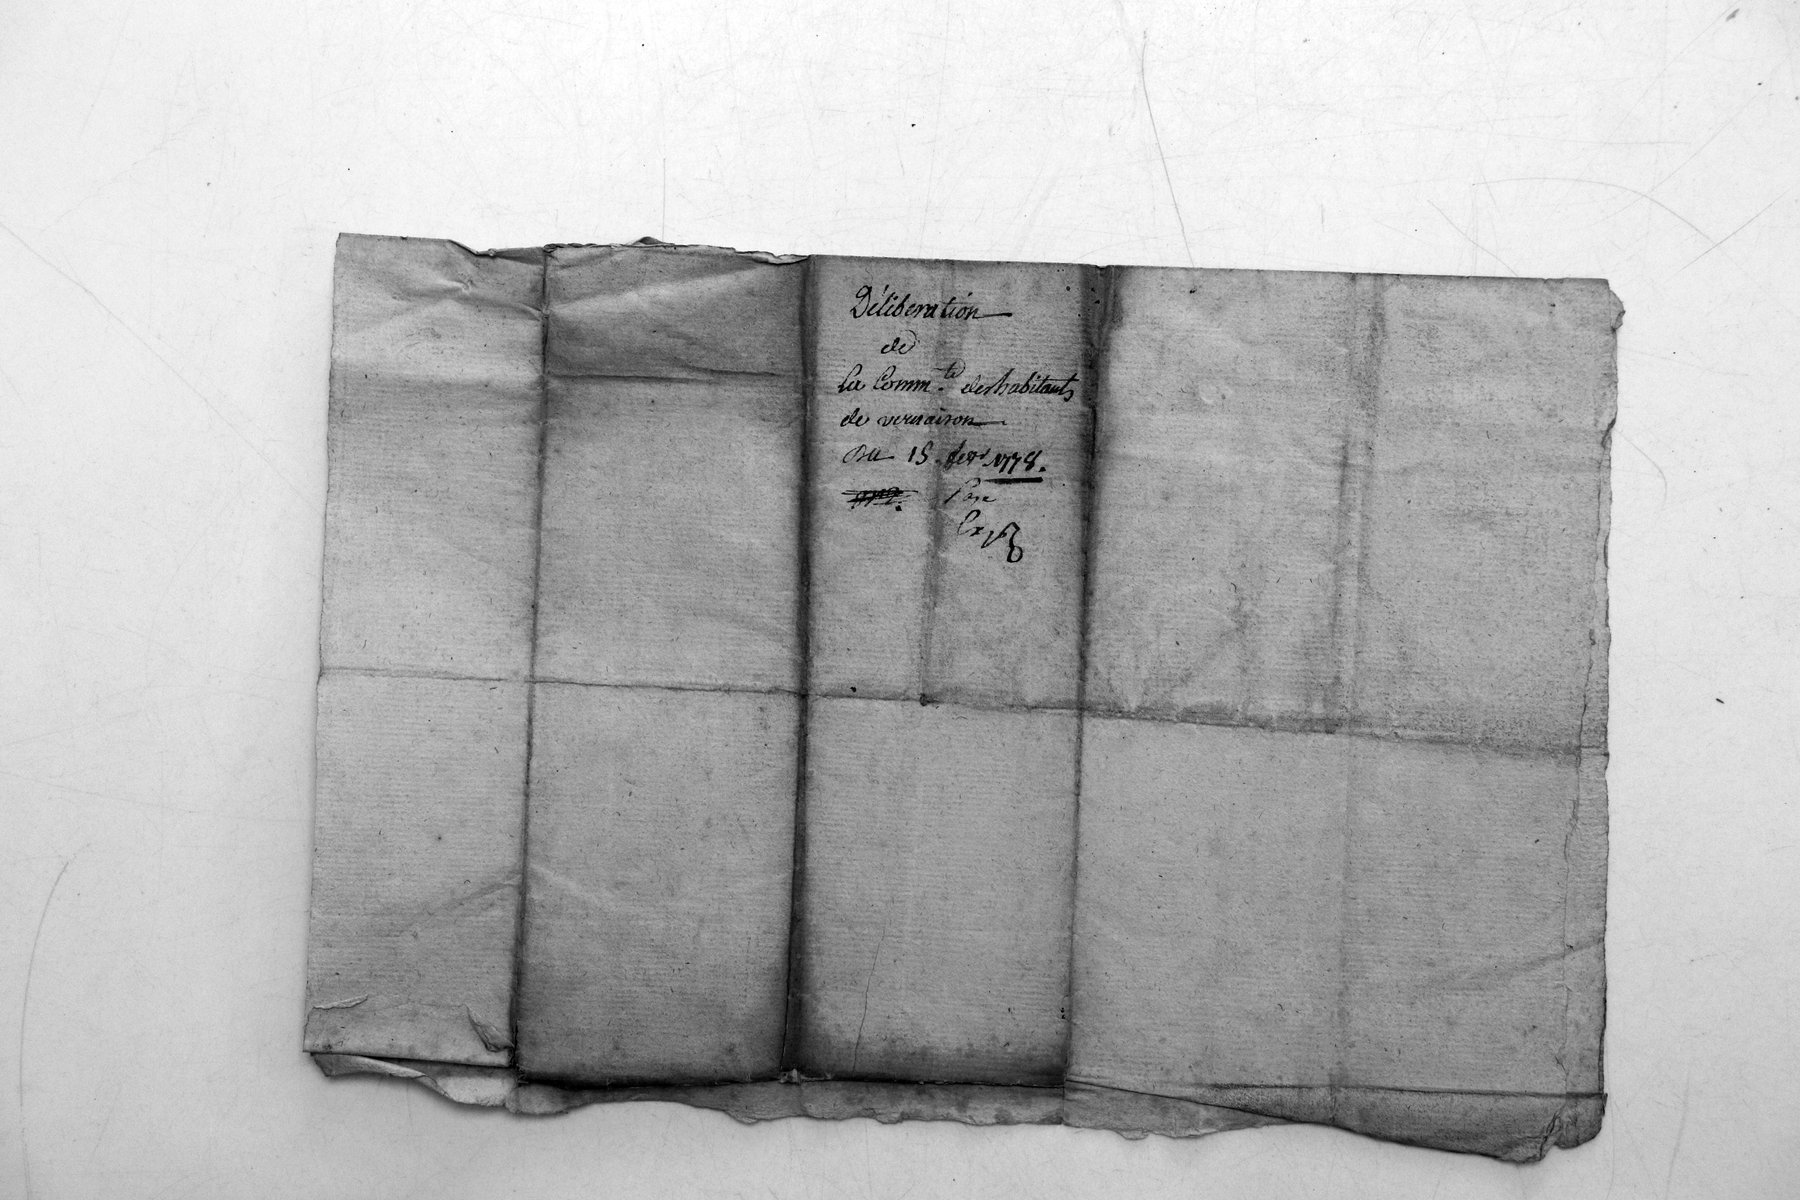 Déliberation
de
La Comm.té des habitants
de vernaison
Du 15 fevr 1778.